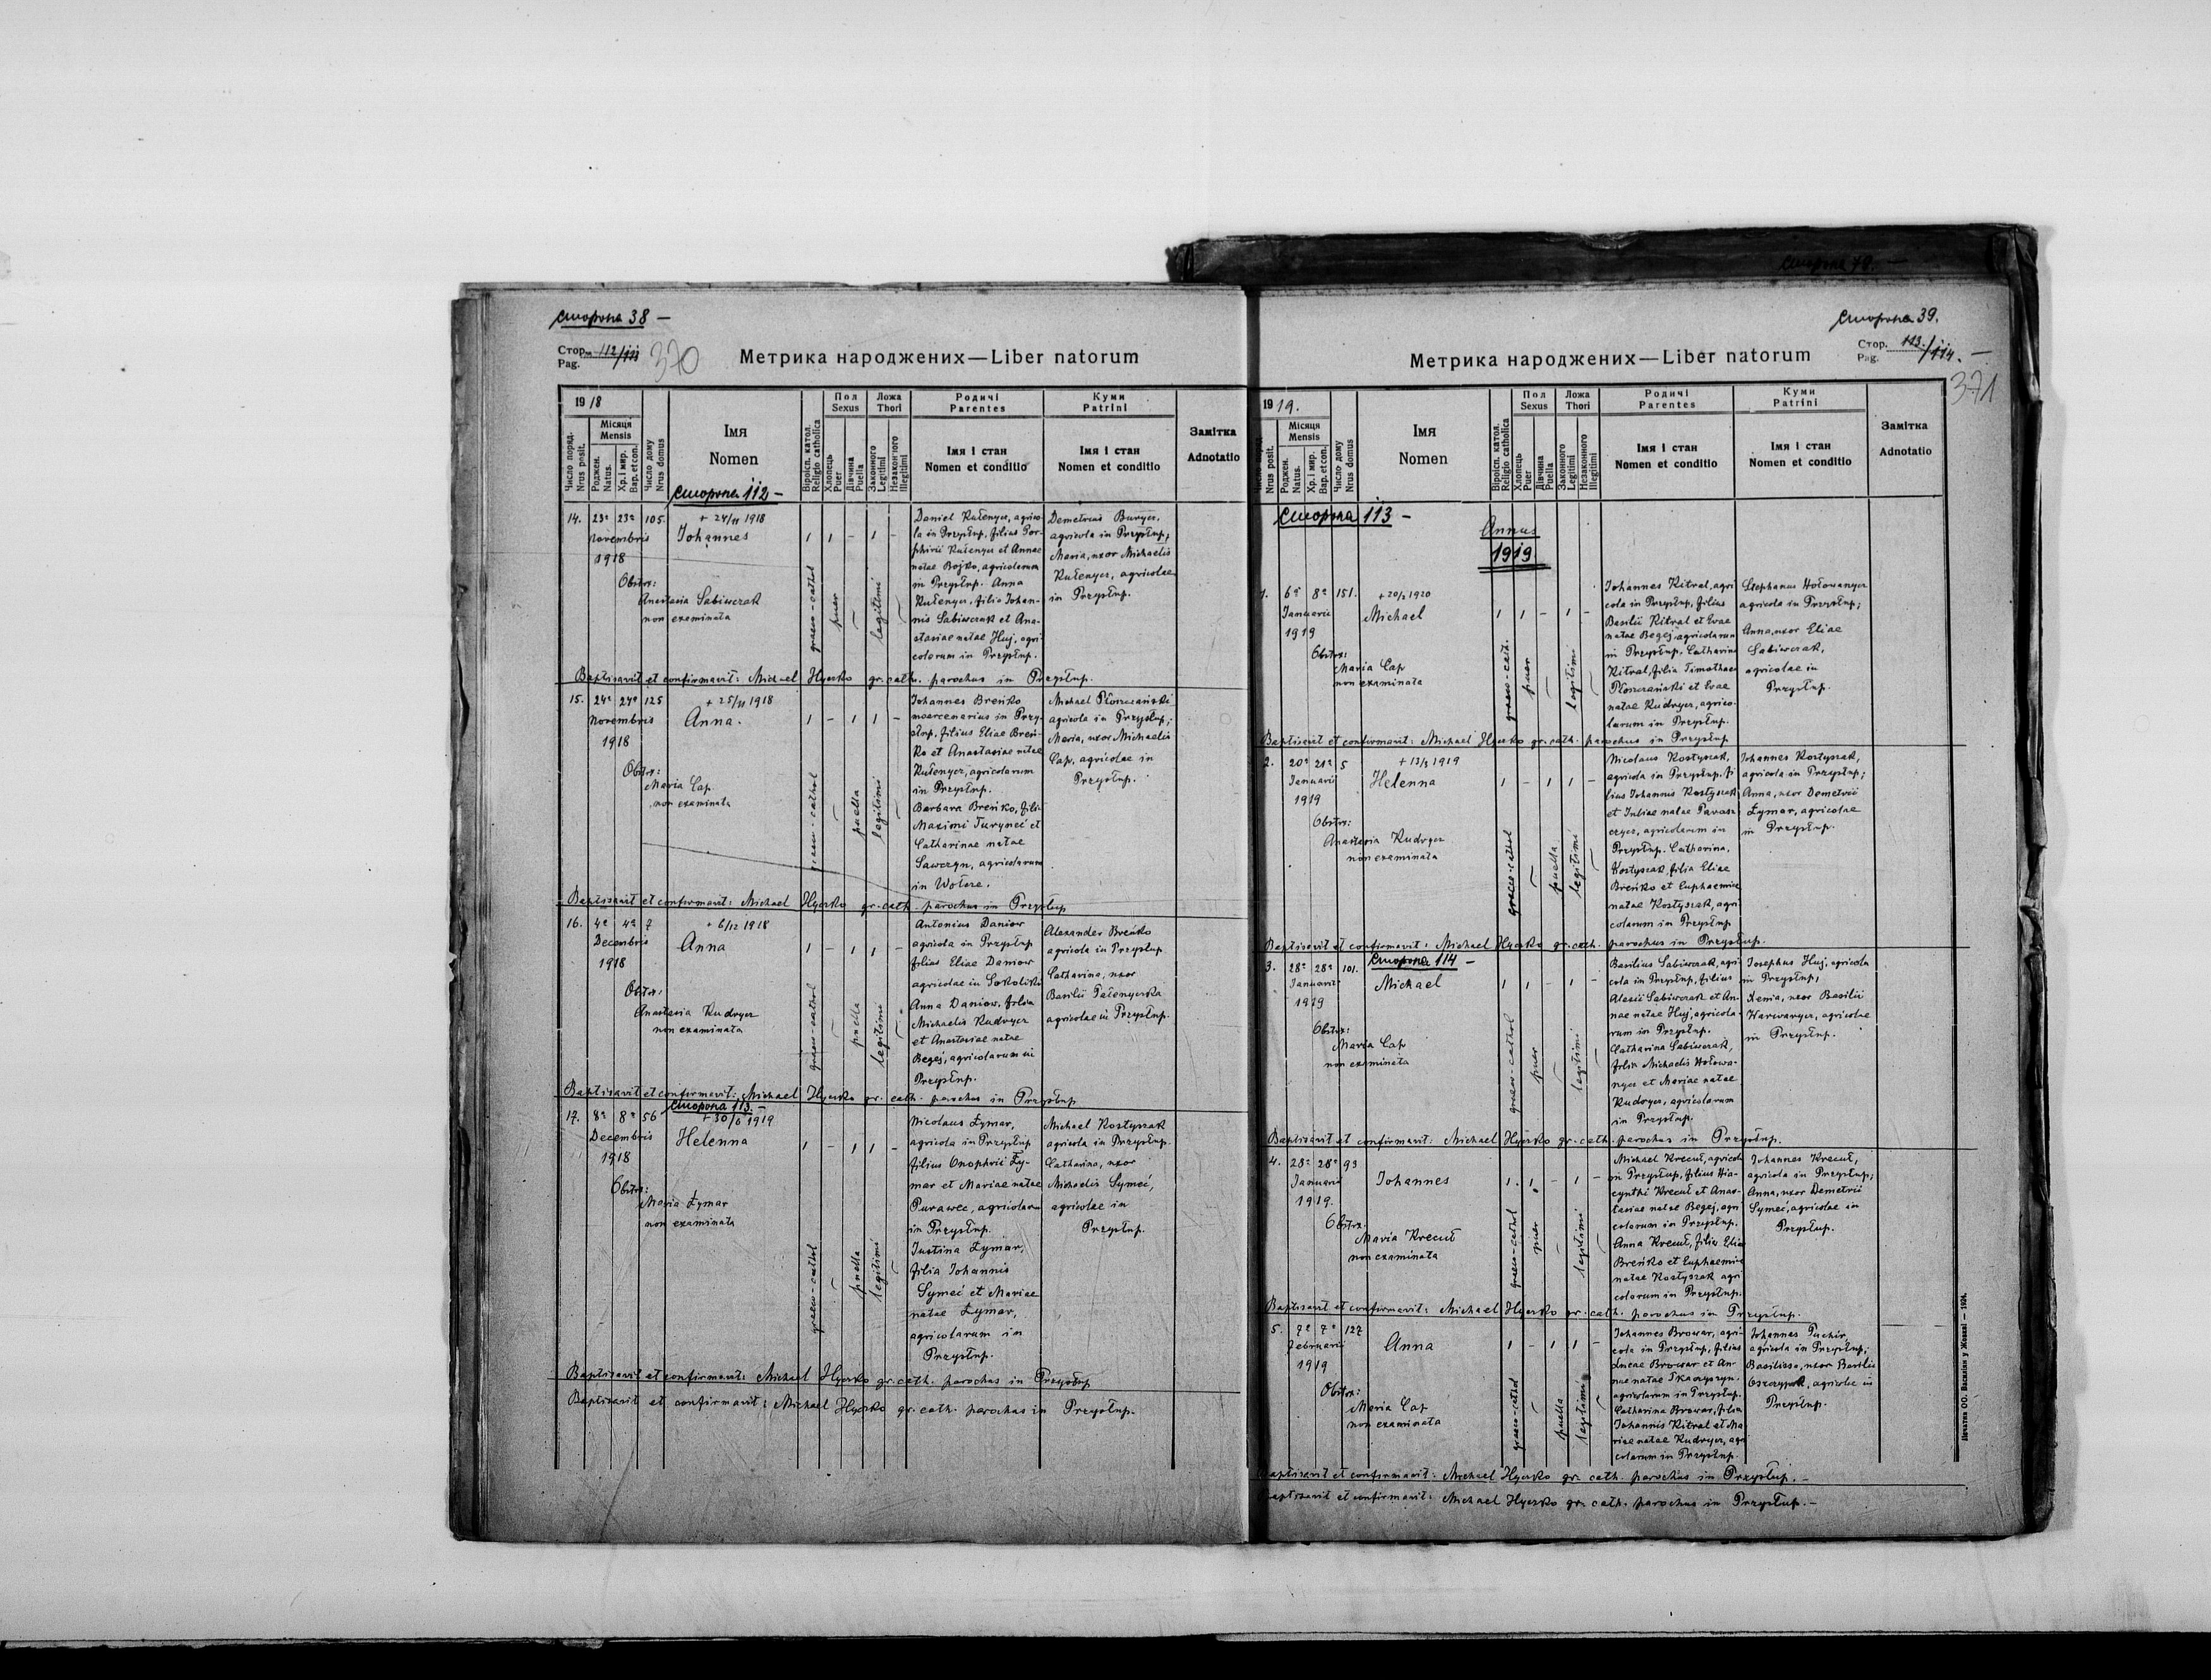 Сторона 38 —
Стор. 112/111
Pag.
370
Метрика народжених—Liber natorum
1918
Число поряд. Nrus posit.
Місяця Mensis
Роджен. Natus.
Хр. і мир. Bap. et con.
Число дому Nrus domus
Імя
Nomen
Віроісп. катол. Religio catholica
Пол Sexus
Хлопець Puer
Дівчина Puella
Ложа Thori
Законного Legitimi
Незаконного Illegitimi
Родичі
Parentes
Імя і стан
Nomen et conditio
Куми
Patrini
Імя і стан
Nomen et conditio
Замітка
Adnotatio
Сторона 112 —
14. 23ª 23ª 105. + 24/11 1918
Novembris Johannes
1918
Obstrx:
Anastasia Sabiwczak
non exeminata
graeco-cathol puer legitimi
Daniel Kuzenyer, agrico-
la in Przysłup, filius Por-
phirii Kuzenyer et Annae
natae Bojko, agricolarum
in Przysłup. Anna
Kuzenyer, filia Johan-
nis Sabiwczak et Ana-
stasiae natae Huj, agri-
colarum in Przysłup.
Demetrius Buryer,
agricola in Przysłup;
Maria, uxor Michaelis
Kuzenyer, agricolae
in Przysłup.
Baptisavit et confirmavit: Michael Hycsko gr. cath. parochus in Przysłup.
15. 24ª 24ª 125 + 25/11 1918
Novembris Anna.
1918
Obstrx:
Maria Cap
non examinata
graeco-cathol puella legitimi
Johannes Breńko
mercenarius in Przy-
słup, filius Eliae Breń-
ko et Anastasiae natae
Kuzenyer, agricolarum
in Przysłup.
Barbara Breńko, filia
Maximi Turyneć et
Catharinae natae
Sawczyn, agricolarum
in Wołcze.
Michael Płoszczański
agricola in Przysłup;
Maria, uxor Michaelis
Cap, agricolae in
Przysłup.
Baptisavit et confirmavit: Michael Hycsko gr. cath. parochus in Przysłup
16. 4ª 4ª 7 + 6/12 1918
Decembris Anna
1918
Obstrx:
Anastasia Kudryer
non examinata
graeco-cathol puella legitimi
Antonius Daniow
agricola in Przysłup
filius Eliae Daniow
agricolae in Sokoliki
Anna Daniow, filia
Michaelis Kudryer
et Anastasiae natae
Begej, agricolarum in
Przysłup.
Alexander Breńko
agricola in Przysłup
Catharina, uxor
Basilii
agricolae in Przysłup.
Baptisavit et confirmavit: Michael Hycsko gr. cath. parochus in Przysłup
Сторона 113. —
17. 8ª 8ª 56 + 30/6 1919
Decembris Helenna
1918
Obstrx:
Maria Łymar
non examinata
graeco-cathol puella legitimi
Nicolaus Łymar,
agricola in Przysłup
filius Onophrii Ły-
mar et Mariae natae
Purawec, agricolarum
in Przysłup.
Justina Łymar,
filia Johannis
Symeć et Mariae
natae Łymar,
agricolarum in
Przysłup.
Michael Kostyszak
agricola in Przysłup.
Catharina, uxor
Michaelis Symeć,
agricolae in
Przysłup.
Baptisavit et confirmavit: Michael Hycsko gr. cath. parochus in Przysłup
Baptisavit et confirmavit: Michael Hycsko gr. cath. parochus in Przysłup.
Сторона 78. —
Сторона 39.
Стор. 113./114. —
Pag.
371
Метрика народжених—Liber natorum
1919.
Число поряд. Nrus posit.
Місяця Mensis
Роджен. Natus.
Хр. і мир. Bap. et con.
Число дому Nrus domus
Імя
Nomen
Віроісп. катол. Religio catholica
Пол Sexus
Хлопець Puer
Дівчина Puella
Ложа Thori
Законного Legitimi
Незаконного Illegitimi
Родичі
Parentes
Імя і стан
Nomen et conditio
Куми
Patrini
Імя і стан
Nomen et conditio
Замітка
Adnotatio
Сторона 113 —
Annus
1919
1. 6ª 8ª 151. + 20/2 1920
Januarii Michael
1919
Obstrx:
Maria Cap
non examinata
graeco-cath. puer legitimi
Johannes Kitral, agri-
cola in Przysłup, filius
Basilii Kitral et Evae
natae Begej, agricolarum
in Przysłup. Catharina
Kitral, filia Timothaei
Płoszczański et Evae
natae Kudryer, agrico-
larum in Przysłup.
Stephanus Hołowanyer
agricola in Przysłup;
Anna, uxor Eliae
Sabiwczak,
agricolae in
Przysłup.
Baptisavit et confirmavit: Michael Hycsko gr. cath. parochus in Przysłup
2. 20ª 21ª 5 + 13/2 1919
Januarii Helenna
1919
Obstrx:
Anastasia Kudryer
non examinata
graeco-cathol puella legitimi
Nicolaus Kostyszak,
agricola in Przysłup. fi-
lius Johannis Kostyszak
et Juliae natae Parasz-
czyer, agricolarum in
Przysłup. Catharina,
Kostyszak, filia Eliae
Breńko et Euphaemiae
natae Kostyszak, agri-
colarum in Przysłup
Johannes Kostyszak,
agricola in Przysłup;
Anna, uxor Demetrii
Łymar, agricolae
in Przysłup.
Baptisavit et confirmavit: Michael Hycsko gr. cath. parochus in Przysłup.
Сторона 114 —
3. 28ª 28ª 101.
Januarii Michael
1919
Obstrx:
Maria Cap
non examinata
graeco-cathol puer legitimi
Basilius Sabiwczak, agri-
cola in Przysłup, filius
Alexii Sabiwczak et An-
nae natae Huj, agricola-
rum in Przysłup.
Catharina Sabiwczak,
filia Michaelis Hołowa-
nyer et Mariae natae
Kudryer, agricolarum
in Przysłup.
Josephus Huj, agricola
in Przysłup;
Xenia, uxor Basilii
Harwanyer, agricolae
in Przysłup.
Baptisavit et confirmavit: Michael Hycsko gr. cath. parochus in Przysłup.
4. 28ª 28ª 93
Januarii Johannes
1919.
Obstrx.
Maria Krecuł
non examinata
graeco-cathol puer legitimi
Michael Krecuł, agricola
in Przysłup, filius Hia-
cynthi Krecuł et Anas-
tasiae natae Begej, agri-
colarum in Przysłup.
Anna Krecuł, filia Eliae
Breńko et Euphaemiae
natae Kostyszak agri-
colarum in Przysłup.
Johannes Krecuł,
agricola in Przysłup;
Anna, uxor Demetrii
Symeć, agricolae in
Przysłup.
Baptisavit et confirmavit: Michael Hycsko gr. cath. parochus in Przysłup.
5. 7ª 7ª 127
Februarii Anna
1919
Obstrx:
Maria Cap
non examinata
graeco-cathol puella legitimi
Johannes Browar, agri-
cola in Przysłup, filius
Lucae Browar et An-
nae natae Tkaczyszyn,
agricolarum in Przysłup.
Catharina Browar, filia
Johannis Kitral et Ma-
riae natae Kudryer, agri-
colarum in Przysłup.
Johannes
agricola in Przysłup;
Basilissa, uxor Basilii
agricolae in
Przysłup.
Baptisavit et confirmavit: Michael Hycsko gr. cath. parochus in Przysłup. —
Baptisavit et confirmavit: Michael Hycsko gr. cath. parochus in Przysłup. —
Печатня ОО. Василіян у Жовкві — 1924.